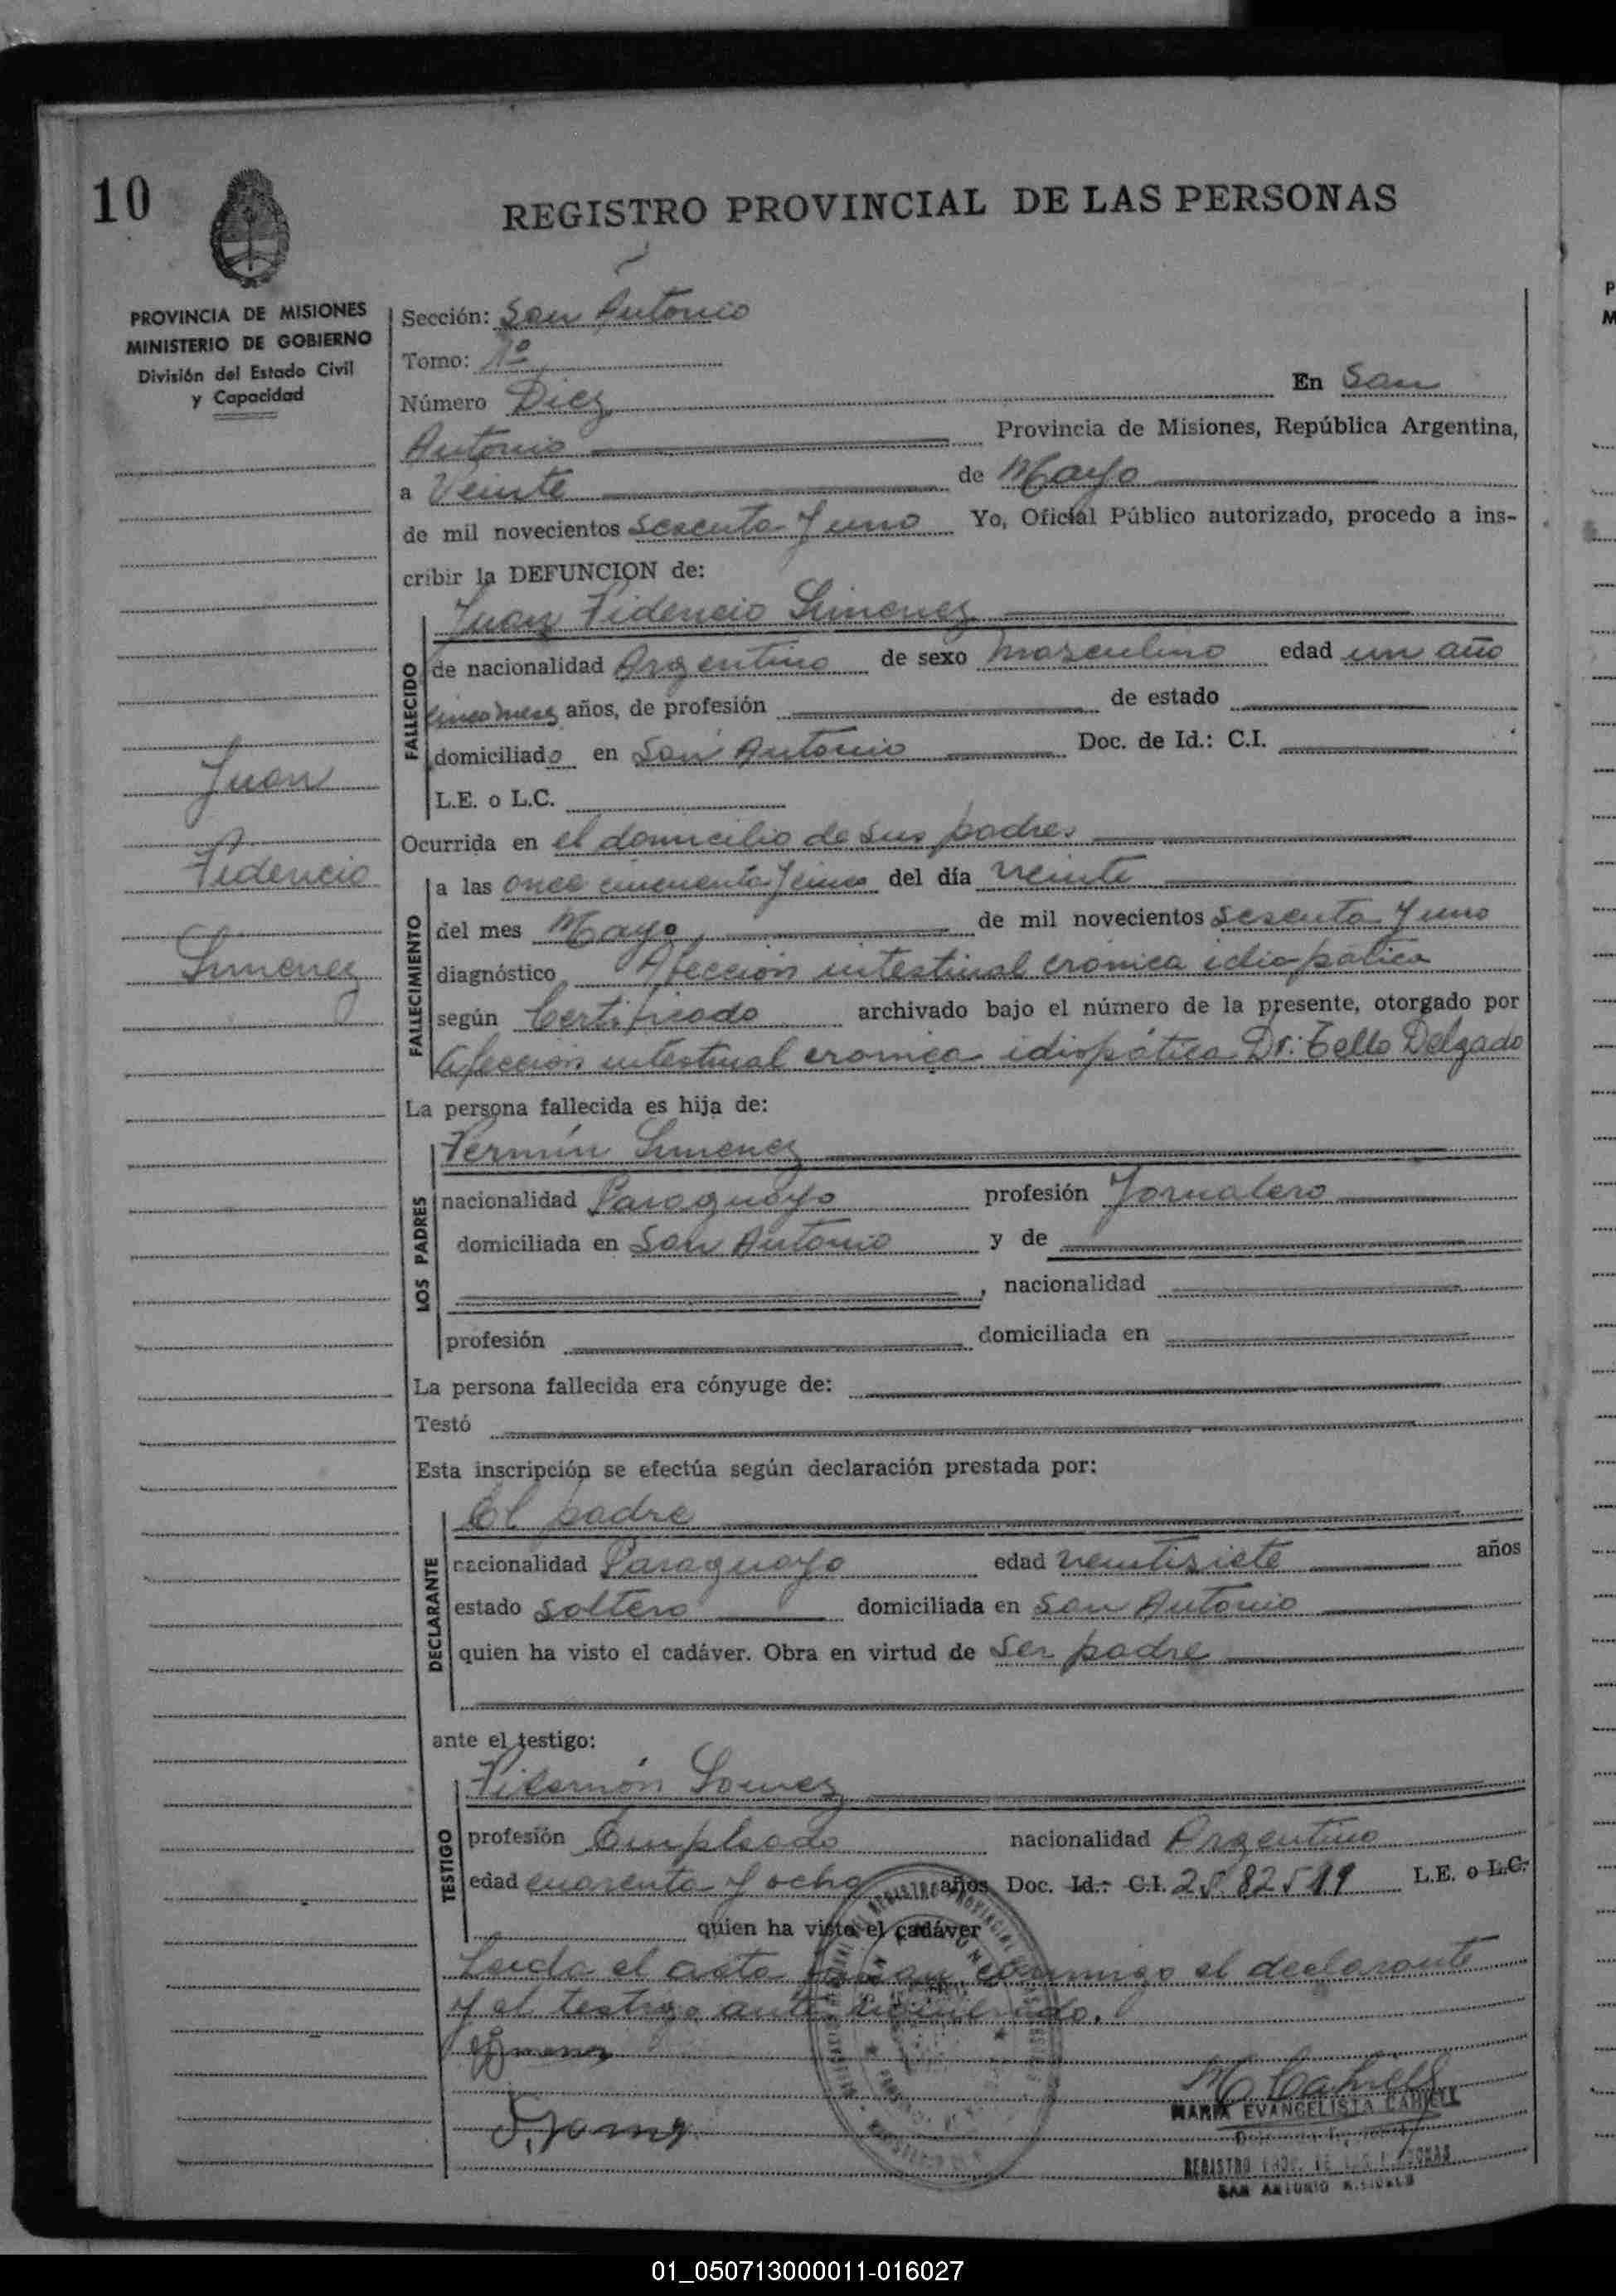 10
REGISTRO PROVINCIAL DE LAS PERSONAS
PROVINCIA DE MISIONES
MINISTERIO DE GOBIERNO
División del Estado Civil
y Capacidad
Juan
Fidencio
Simenez
Sección: San Antonio
Tomo: 1º
Número Diez En San
Antonio Provincia de Misiones, República Argentina,
a Veinte de Mayo
de mil novecientos sesenta y uno Yo, Oficial Público autorizado, procedo a ins-
cribir la DEFUNCION de:
Juan Fidencio Simenez
FALLECIDO
de nacionalidad Argentino de sexo masculino edad un año
cinco meses años, de profesión de estado
domiciliado en San Antonio Doc. de Id.: C.I.
L.E. o L.C.
Ocurrida en el domicilio de sus padres
FALLECIMIENTO
a las once cincuenta y cinco del día veinte
del mes Mayo de mil novecientos sesenta y uno
diagnóstico Afección intestinal crónica idiopática
según Certificado archivado bajo el número de la presente, otorgado por
Afección intestinal cronica idiopática Dr: Tello Delgado
La persona fallecida es hija de:
LOS PADRES
Fermín Simenez
nacionalidad Paraguayo profesión Jornalero
domiciliada en San Antonio y de
, nacionalidad
profesión domiciliada en
La persona fallecida era cónyuge de:
Testó
Esta inscripción se efectúa según declaración prestada por:
DECLARANTE
El padre
nacionalidad Paraguayo edad veintisiete años
estado soltero domiciliada en San Antonio
quien ha visto el cadáver. Obra en virtud de ser padre
ante el testigo:
TESTIGO
Filemón
profesión Empleado nacionalidad Argentino
edad cuarenta y ocho años Doc. Id.: C.I. L.E. o L.C.
quien ha visto el cadáver
Leida el acta conmigo el declarante
y el testigo
MARIA EVANGELISTA CAHIELL
REGISTRO PROV. DE LAS PERSONAS
SAN ANTONIO MISIONES
01_050713000011-016027